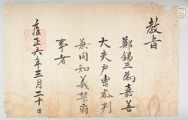 教旨
鄭錫三為嘉善
大夫戶曹參判
兼同知義禁府
事者
雍正六年三月二十日